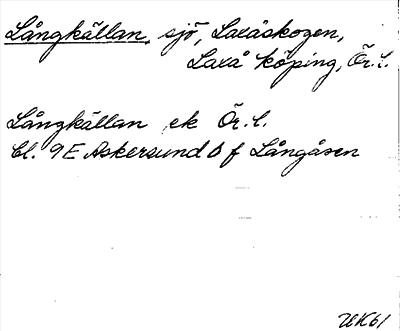 Långkällan, sjö, Laxåskogen,
Laxå köping, Ör. l.
Långkällan ek Ör. l.
bl. 9E Askersund 6 f Långåsen
UK61